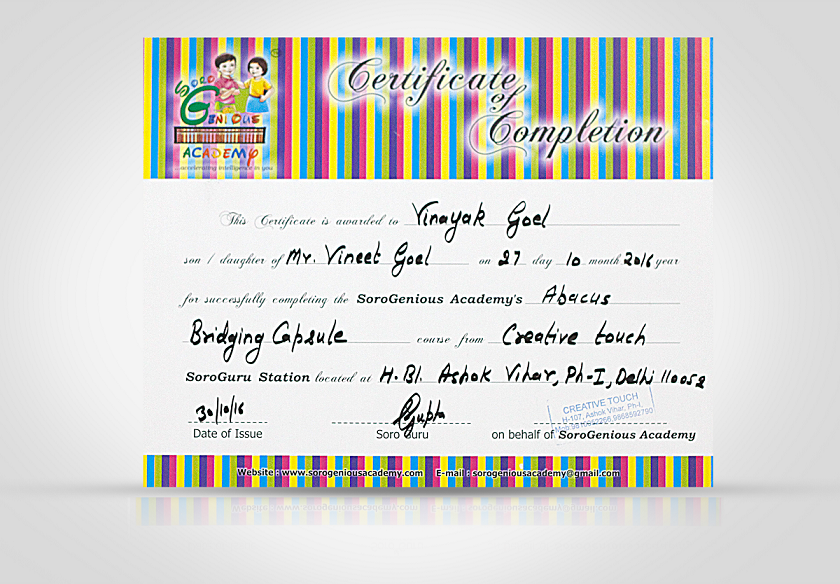 SORO
GENIOUS
ACADEMY
...accelerating intelligence in you
Certificate
of
Completion
This Certificate is awarded to Vinayak Goel
son / daughter of Mr. Vineet Goel on 27 day 10 month 2016 year
for successfully completing the SoroGenious Academy's Abacus
Bridging Capsule course from Creative touch
SoroGuru Station located at H.Bl. Ashok Vihar, Ph-I, Delhi 110052
30/10/16 Gupta
CREATIVE TOUCH
H-107, Ashok Vihar, Ph-I.
Date of Issue Soro Guru on behalf of SoroGenious Academy
Website : www.sorogeniousacademy.com E-mail : sorogeniousacademy@gmail.com